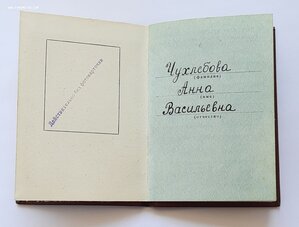 Действительно без фотокарточки
Чухлебова
(фамилия)
Анна
(имя)
Васильевна
(отчество)